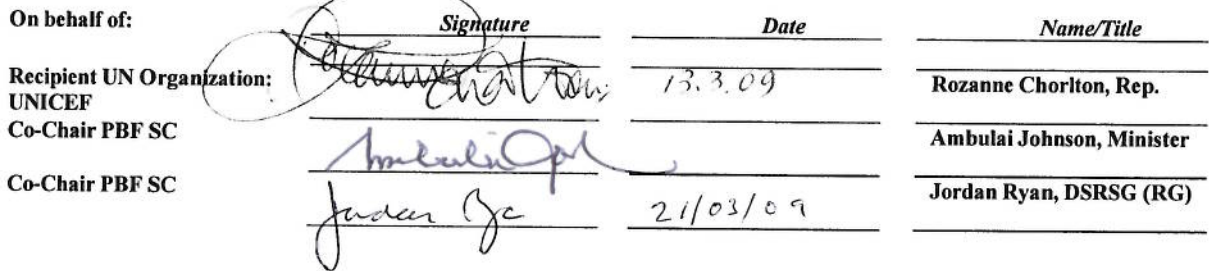 On behalf of: Signature Date Name/Title
Recipient UN Organization: 13.3.09 Rozanne Chorlton, Rep.
UNICEF
Co-Chair PBF SC Ambulai Johnson, Minister
Co-Chair PBF SC Jordan 21/03/09 Jordan Ryan, DSRSG (RG)